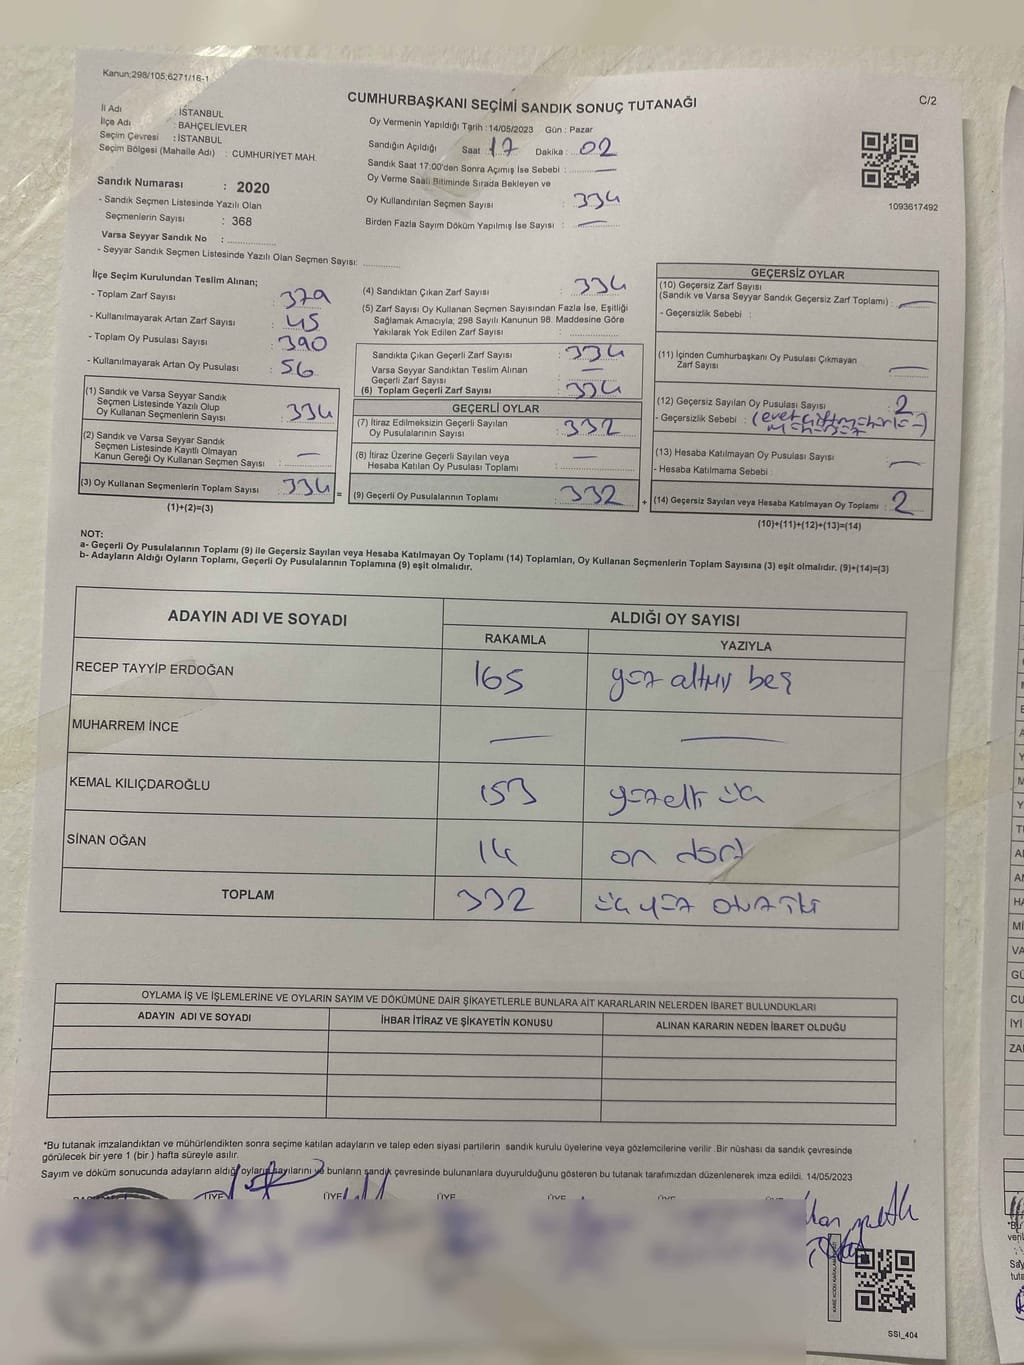 Kanun;298/105;6271/16-1
C/2
CUMHURBAŞKANI SEÇİMİ SANDIK SONUÇ TUTANAĞI
İl Adı : İSTANBUL
İlçe Adı : BAHÇELİEVLER
Seçim Çevresi : İSTANBUL
Seçim Bölgesi (Mahalle Adı) : CUMHURİYET MAH.
Sandık Numarası : 2020
- Sandık Seçmen Listesinde Yazılı Olan
Seçmenlerin Sayısı : 368
Varsa Seyyar Sandık No : ................
- Seyyar Sandık Seçmen Listesinde Yazılı Olan Seçmen Sayısı: ............
Oy Vermenin Yapıldığı Tarih : 14/05/2023 Gün : Pazar
Sandığın Açıldığı Saat : 17 Dakika : 02
Sandık Saat 17:00'den Sonra Açımış İse Sebebi : —
Oy Verme Saati Bitiminde Sırada Bekleyen ve
Oy Kullandırılan Seçmen Sayısı : 334
Birden Fazla Sayım Döküm Yapılmış İse Sayısı : —
1093617492
İlçe Seçim Kurulundan Teslim Alınan;
- Toplam Zarf Sayısı : 379
- Kullanılmayarak Artan Zarf Sayısı : 45
- Toplam Oy Pusulası Sayısı : 390
- Kullanılmayarak Artan Oy Pusulası : 56
(1) Sandık ve Varsa Seyyar Sandık
Seçmen Listesinde Yazılı Olup
Oy Kullanan Seçmenlerin Sayısı : 334
(2) Sandık ve Varsa Seyyar Sandık
Seçmen Listesinde Kayıtlı Olmayan
Kanun Gereği Oy Kullanan Seçmen Sayısı : —
(3) Oy Kullanan Seçmenlerin Toplam Sayısı : 334 =
(1)+(2)=(3)
(4) Sandıktan Çıkan Zarf Sayısı : 334
(5) Zarf Sayısı Oy Kullanan Seçmen Sayısından Fazla İse, Eşitliği
Sağlamak Amacıyla; 298 Sayılı Kanunun 98. Maddesine Göre
Yakılarak Yok Edilen Zarf Sayısı : ................
Sandıkta Çıkan Geçerli Zarf Sayısı : 334
Varsa Seyyar Sandıktan Teslim Alınan
Geçerli Zarf Sayısı : —
(6) Toplam Geçerli Zarf Sayısı : 334
GEÇERLİ OYLAR
(7) İtiraz Edilmeksizin Geçerli Sayılan
Oy Pusulalarının Sayısı : 332
(8) İtiraz Üzerine Geçerli Sayılan veya
Hesaba Katılan Oy Pusulası Toplamı : —
(9) Geçerli Oy Pusulalarının Toplamı : 332 +
GEÇERSİZ OYLAR
(10) Geçersiz Zarf Sayısı
(Sandık ve Varsa Seyyar Sandık Geçersiz Zarf Toplamı) : —
- Geçersizlik Sebebi :
(11) İçinden Cumhurbaşkanı Oy Pusulası Çıkmayan
Zarf Sayısı : —
(12) Geçersiz Sayılan Oy Pusulası Sayısı : 2
- Geçersizlik Sebebi :
(13) Hesaba Katılmayan Oy Pusulası Sayısı : —
- Hesaba Katılmama Sebebi :
(14) Geçersiz Sayılan veya Hesaba Katılmayan Oy Toplamı : 2
(10)+(11)+(12)+(13)=(14)
NOT:
a- Geçerli Oy Pusulalarının Toplamı (9) ile Geçersiz Sayılan veya Hesaba Katılmayan Oy Toplamı (14) Toplamları, Oy Kullanan Seçmenlerin Toplam Sayısına (3) eşit olmalıdır. (9)+(14)=(3)
b- Adayların Aldığı Oyların Toplamı, Geçerli Oy Pusulalarının Toplamına (9) eşit olmalıdır.
ADAYIN ADI VE SOYADI
ALDIĞI OY SAYISI
RAKAMLA YAZIYLA
RECEP TAYYİP ERDOĞAN 165 yüz altmış beş
MUHARREM İNCE — —
KEMAL KILIÇDAROĞLU 153 yüzelli üç
SİNAN OĞAN 14 on dört
TOPLAM 332 üç yüz otuz iki
OYLAMA İŞ VE İŞLEMLERİNE VE OYLARIN SAYIM VE DÖKÜMÜNE DAİR ŞİKAYETLERLE BUNLARA AİT KARARLARIN NELERDEN İBARET BULUNDUKLARI
ADAYIN ADI VE SOYADI İHBAR İTİRAZ VE ŞİKAYETİN KONUSU ALINAN KARARIN NEDEN İBARET OLDUĞU
*Bu tutanak imzalandıktan ve mühürlendikten sonra seçime katılan adayların ve talep eden siyasi partilerin sandık kurulu üyelerine veya gözlemcilerine verilir. Bir nüshası da sandık çevresinde
görülecek bir yere 1 (bir ) hafta süreyle asılır.
Sayım ve döküm sonucunda adayların aldığı oyların sayılarını ve bunların sandık çevresinde bulunanlara duyurulduğunu gösteren bu tutanak tarafımızdan düzenlenerek imza edildi. 14/05/2023
ÜYE ÜYE ÜYE ÜYE ÜYE
SSI_404